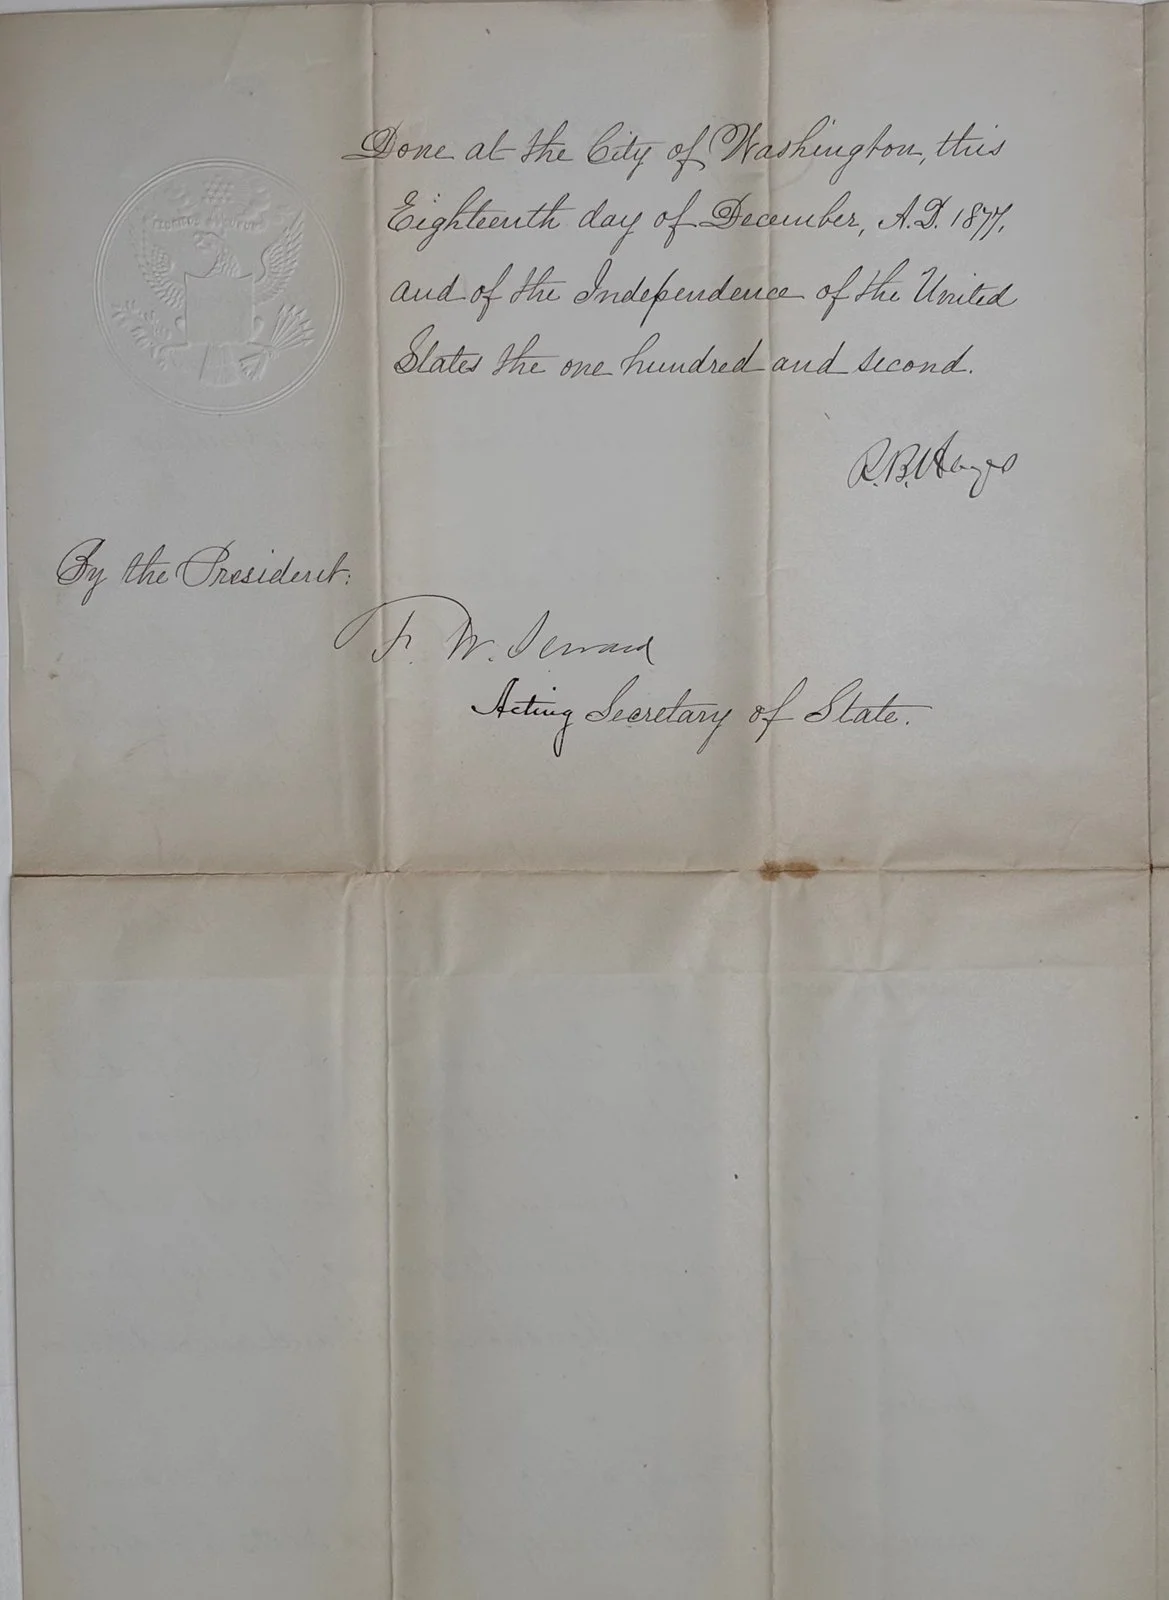 Done at the City of Washington, this
Eighteenth day of December, A.D. 1877,
and of the Independence of the United
States the one hundred and second.
R.B. Hayes
By the President:
F. W. Seward
Acting Secretary of State.